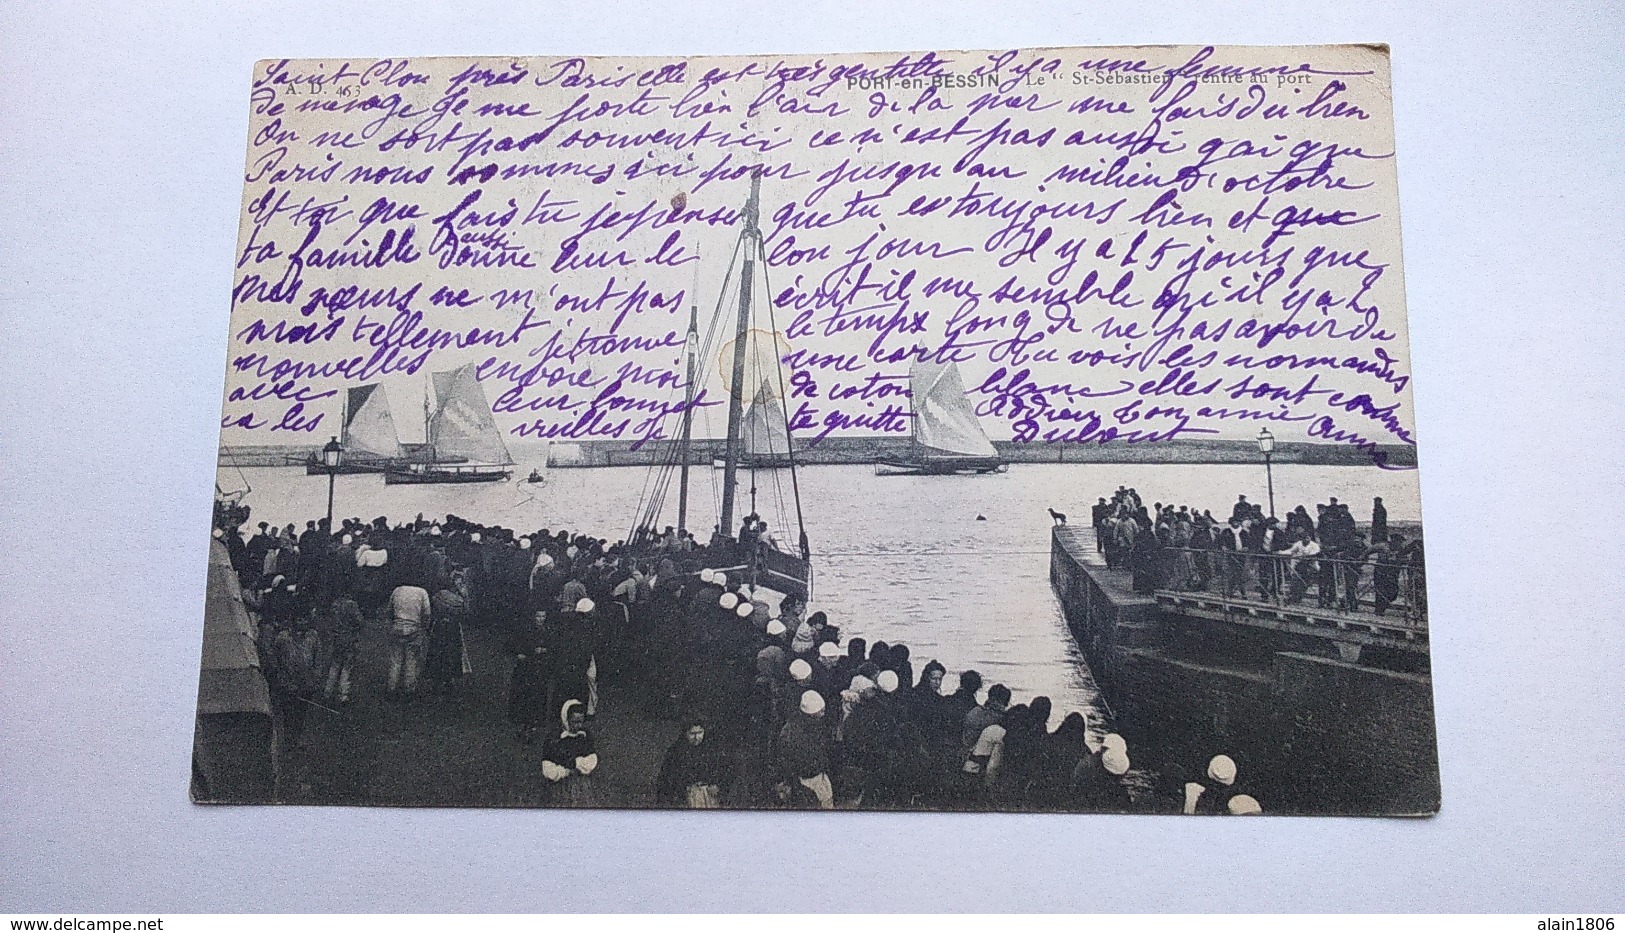 Saint Clou près Paris elle est très gentille il ya une femme
A. D. 463 PORT-en-BESSIN _ Le " St-Sébastien " rentre au port
de menage Je me porte bien l'air de la mer me fais du bien
On ne sort pas souvent ici ce n'est pas aussi gai que
Paris nous sommes ici pour jusqu au milieu d'octobre
Et toi que fais tu je pense que tu es toujours bien et que
ta famille aussi donne leur le bon jour Il y a 15 jours que
mes sœurs ne m'ont pas écrit il me semble qu'il y a 2
mois tellement je trouve le temps long de ne pas avoir de
nouvelles envoie moi une carte Tu vois les normandes
avec leur bonnet de coton blanc elles sont comme
ca les vieilles Je te quitte Addieu Ton amie Anna
Dubout
www.delcampe.net
alain1806